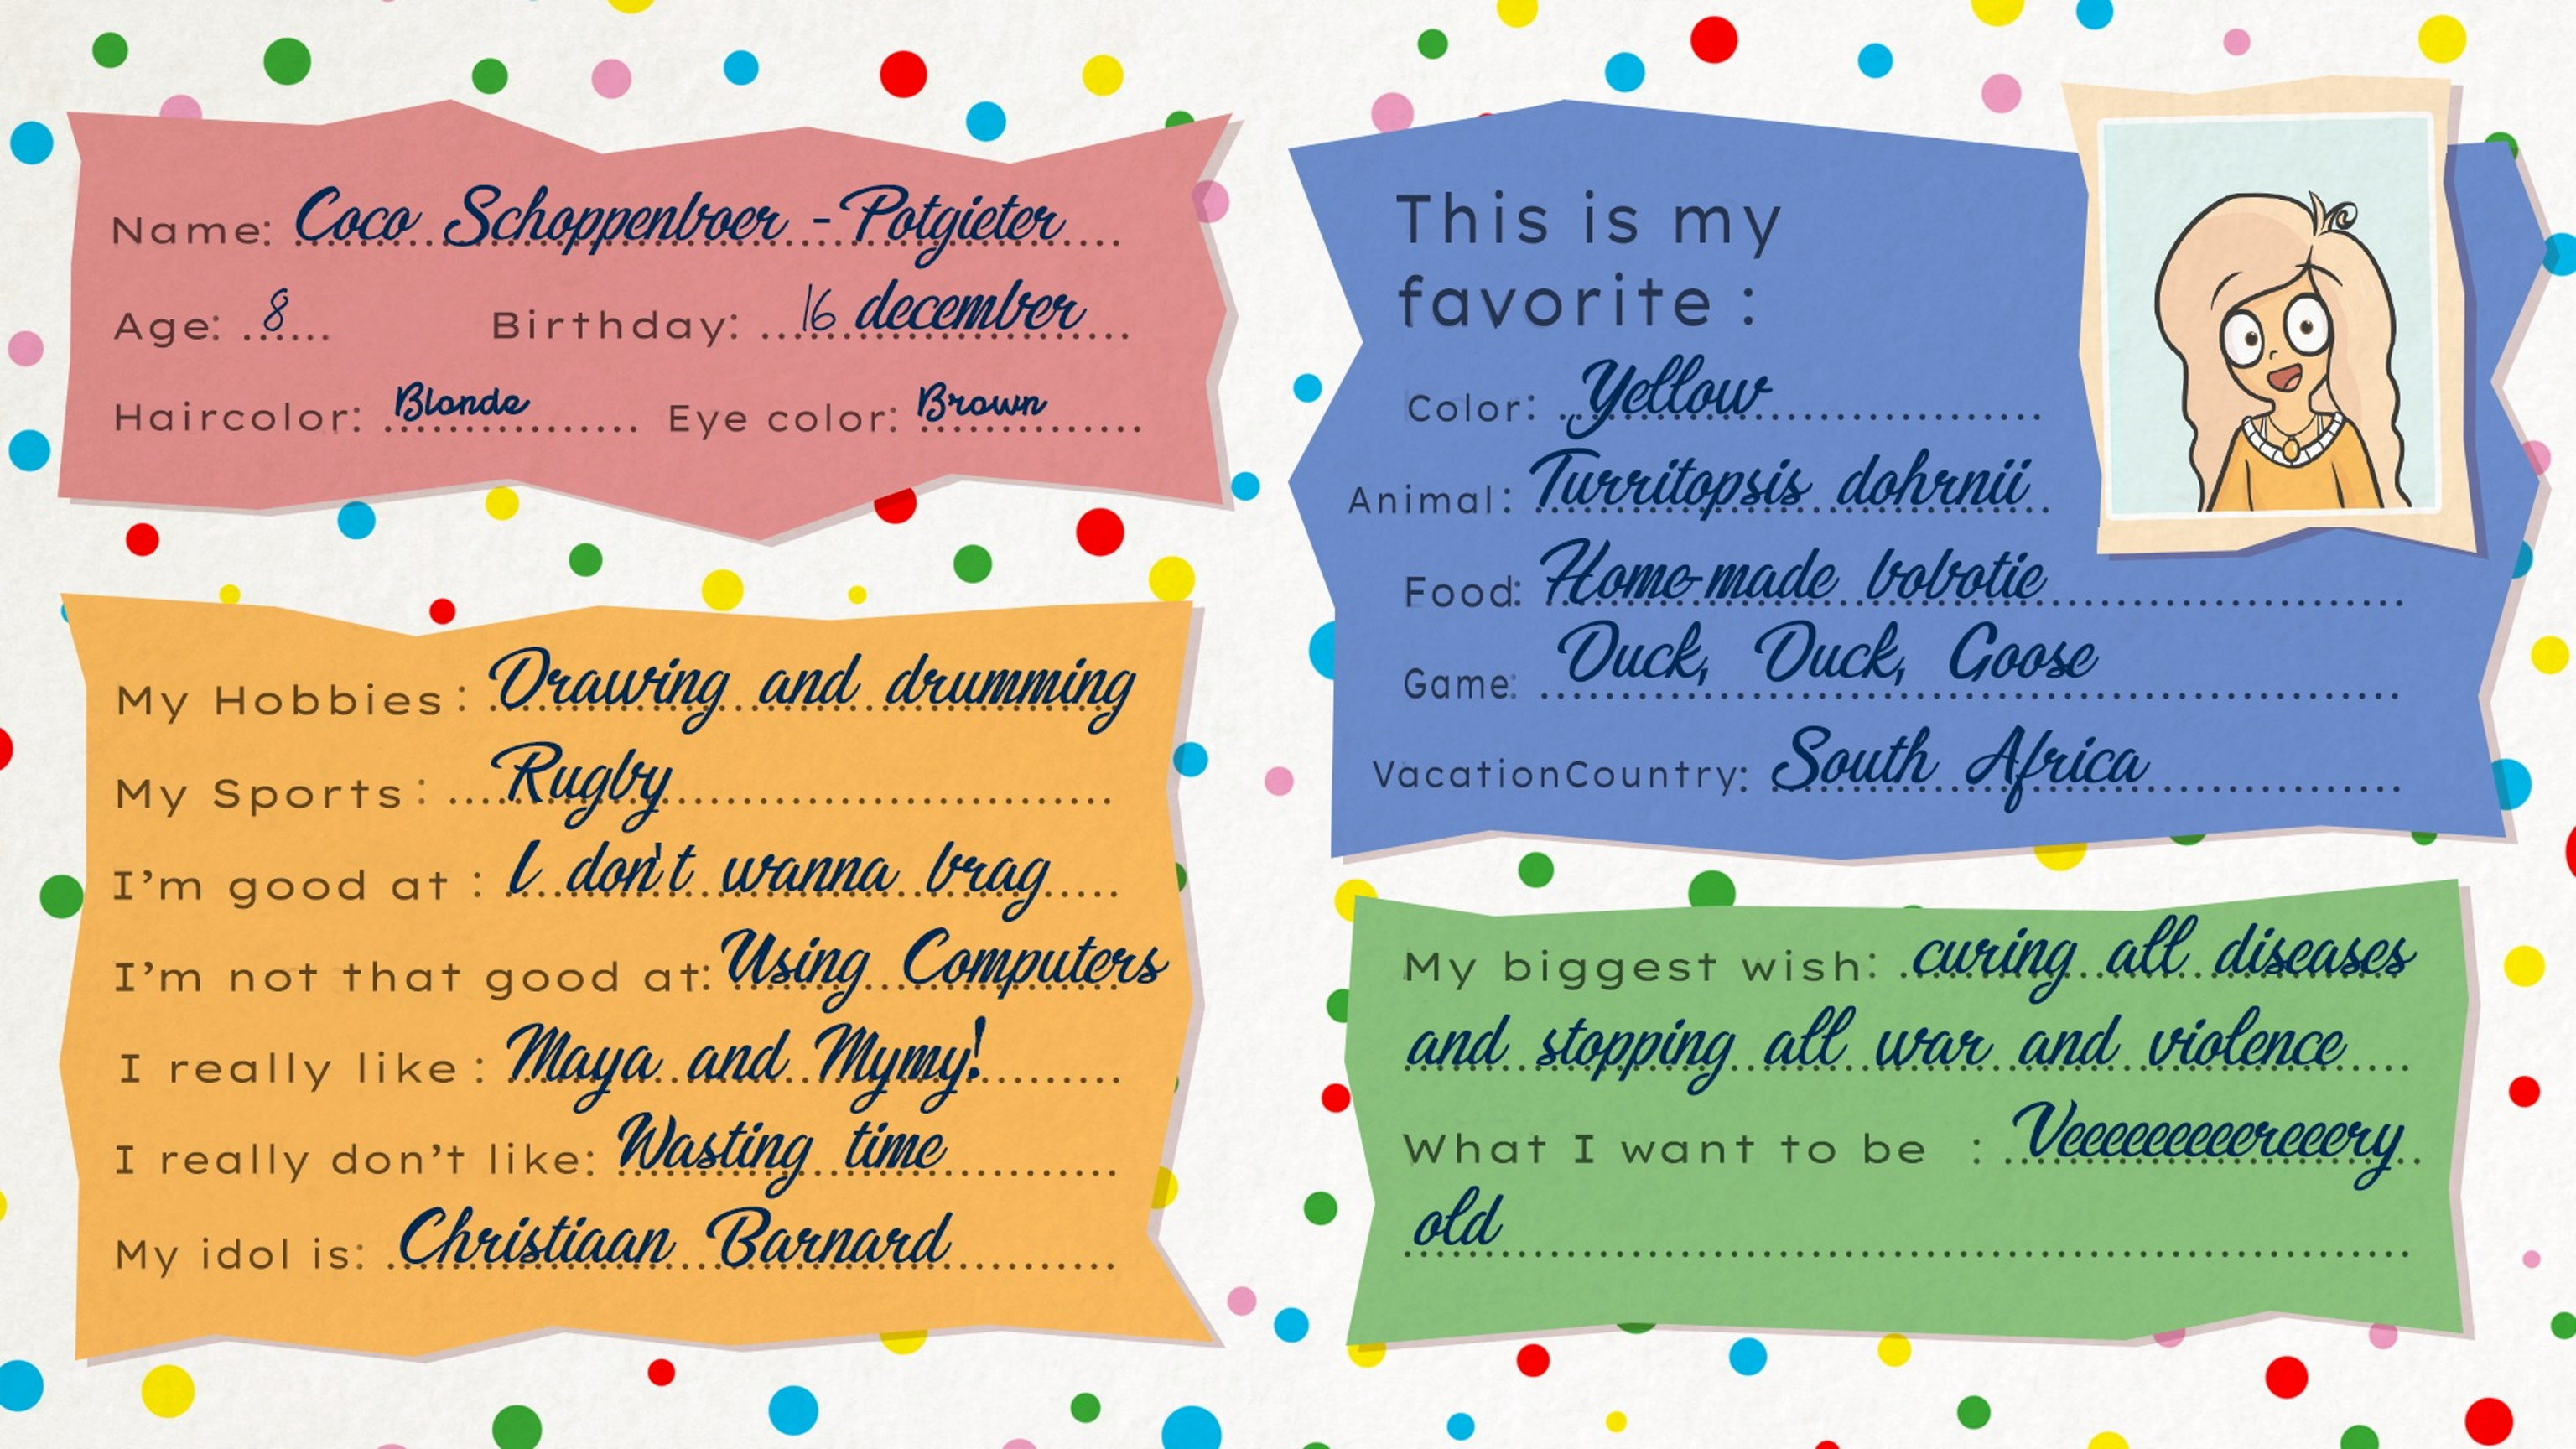 Name: Coco Schoppenboer - Potgieter
Age: 8 Birthday: 16 december
Haircolor: Blonde Eye color: Brown
My Hobbies: Drawing and drumming
My Sports: Rugby
I'm good at : I don't wanna brag
I'm not that good at: Using Computers
I really like : Maya and Mymy!
I really don't like: Wasting time
My idol is: Christiaan Barnard
This is my
favorite :
Color: Yellow
Animal: Turritopsis dohrnii
Food: Home-made bobotie
Game: Duck, Duck, Goose
VacationCountry: South Africa
My biggest wish: curing all diseases
and stopping all war and violence
What I want to be : Veeeeeeeeereeery
old